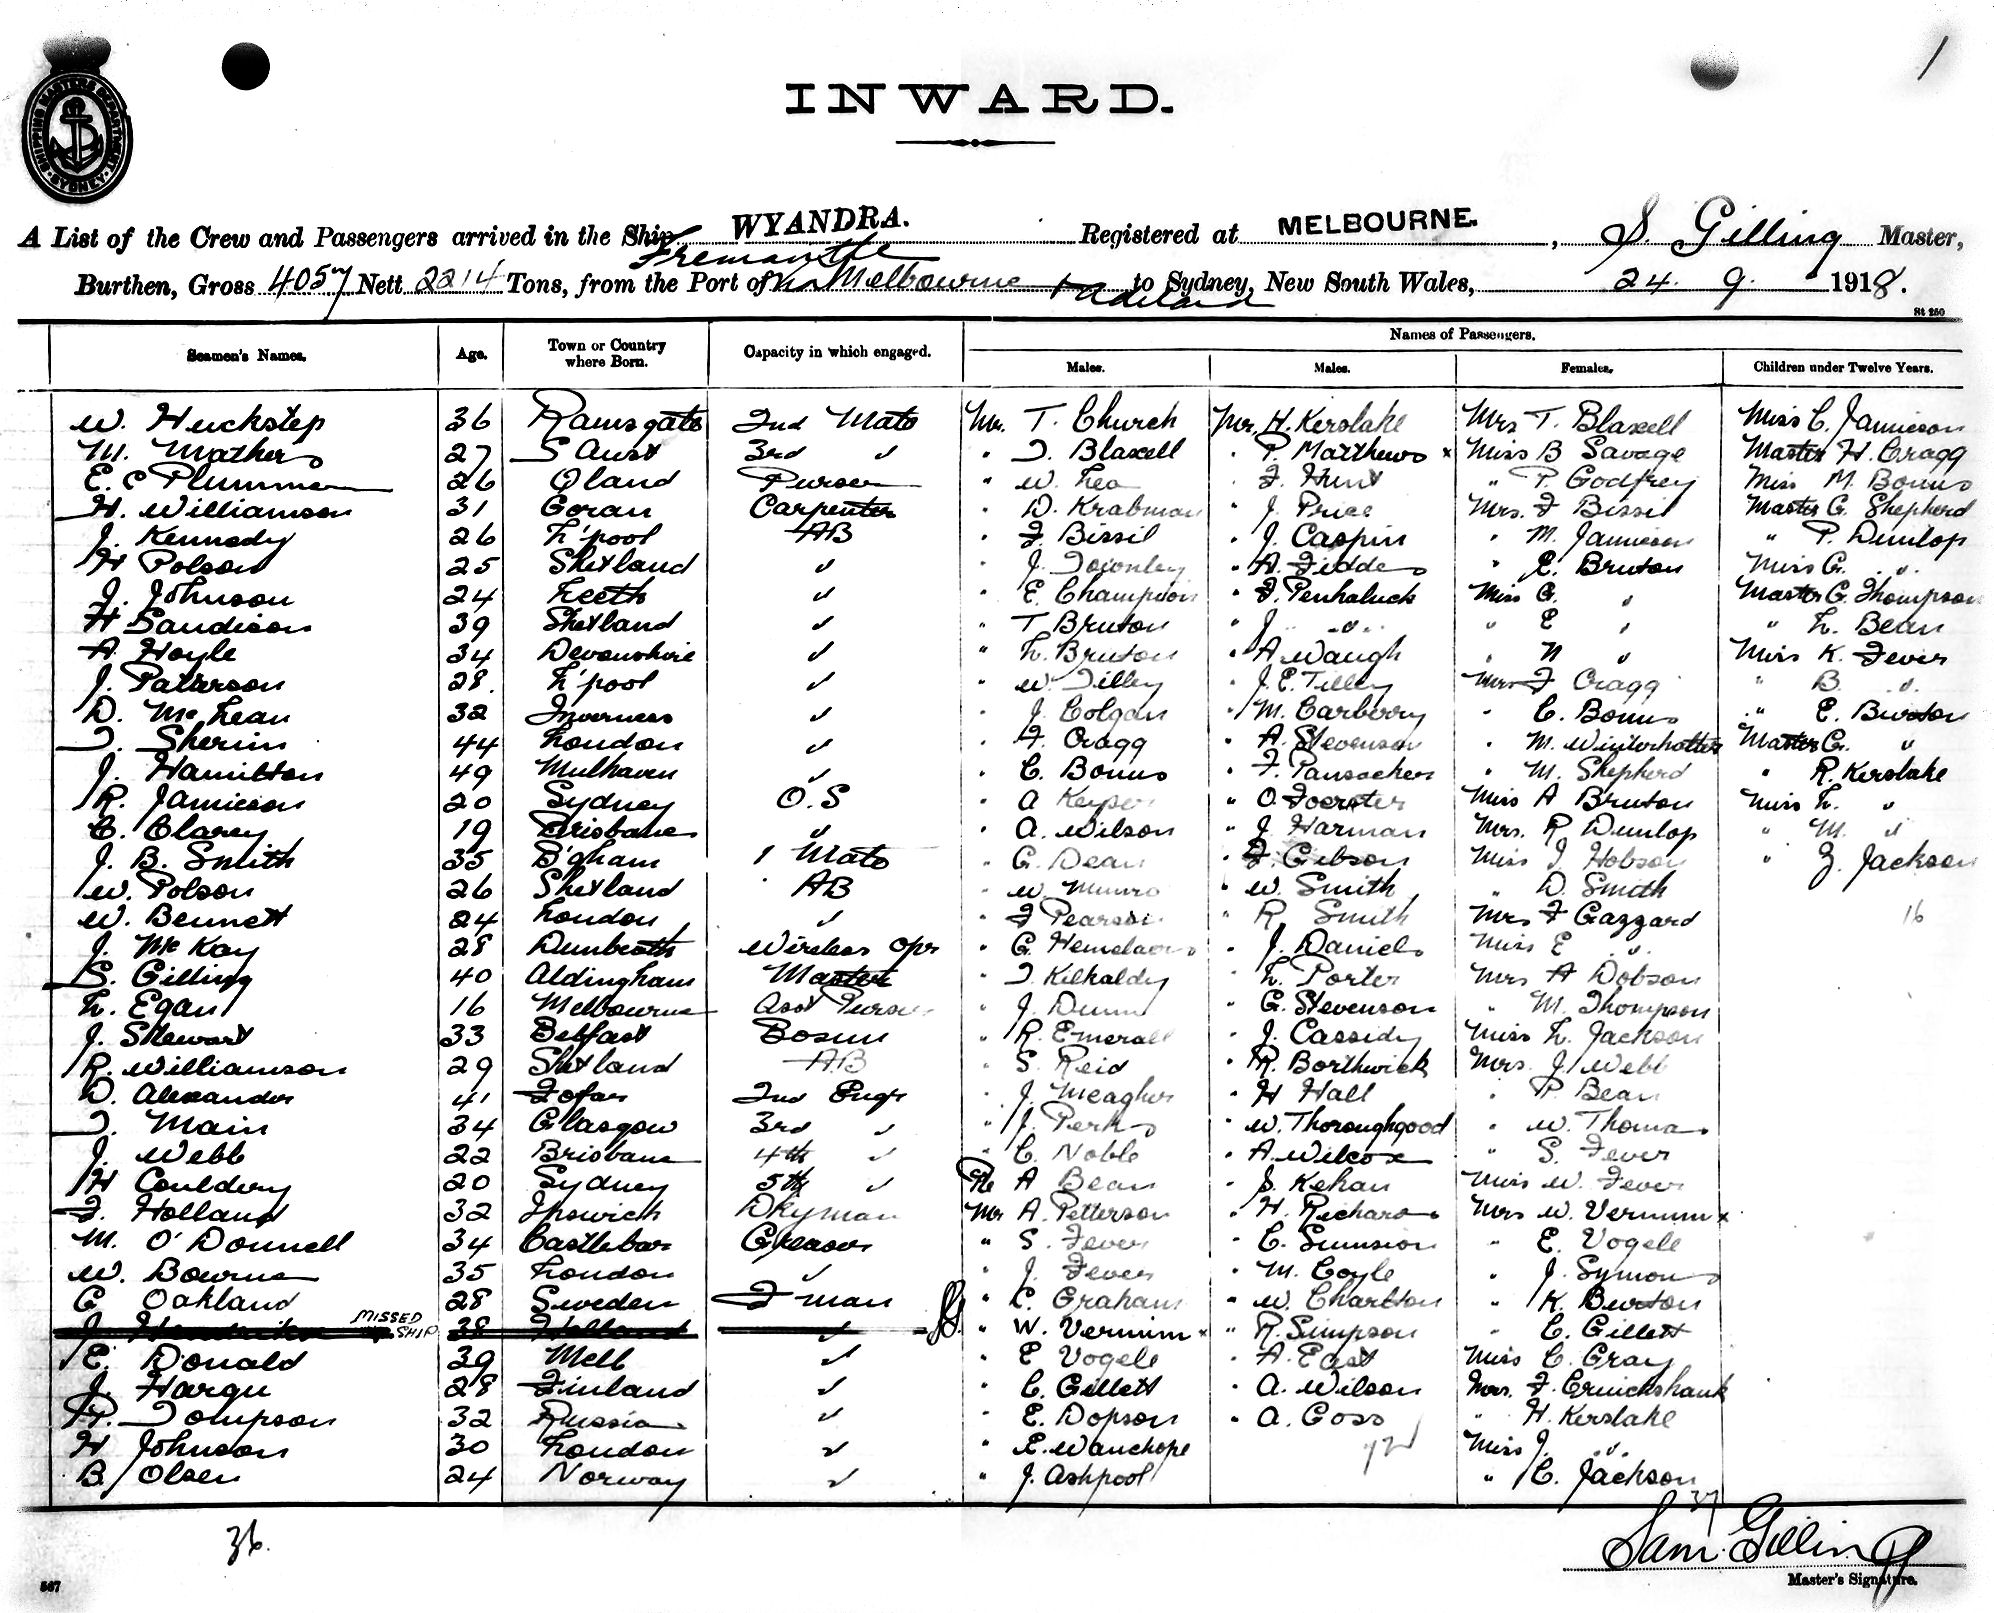 1
SHIPPING MASTERS DEPARTMENT · SYDNEY ·
INWARD.
A List of the Crew and Passengers arrived in the Ship WYANDRA. Registered at MELBOURNE. , S. Gilling Master,
Fremantle
Burthen, Gross 4057 Nett 2214 Tons, from the Port of Melbourne to Sydney, New South Wales, 24. 9. 1918.
St 250
Seamen's Names. Age. Town or Country where Born. Capacity in which engaged. Names of Passengers.
Males. Males. Females. Children under Twelve Years.
W. Huckstep 36 Ramsgate 2nd Mate Mr. T. Church Mr. H. Kerslake Mrs T. Blaxell Miss C. Jamieson
M. Mathers 27 S Aust 3rd " " T. Blaxell " P. Matthews x Miss B Savage Master H. Cragg
E. C Plummer 26 Qland Purser " W. Lea " F. Hunt " P. Godfrey Miss M. Bonus
H. Williamson 31 Goran Carpenter " D. Krabman " J. Price Mrs. F Bissil Master G. Shepherd
J. Kennedy 26 L'pool AB " F. Bissil " J. Caspin " M. Jamieson " P. Dunlop
H Polson 25 Shetland " " J. Townley " A. Fiddes " E. Bruton Miss G. "
J. Johnson 24 Leeth " " E. Champion " F. Penhaluck Miss G. " Master G. Thompson
H Sandison 39 Shetland " " T Bruton " J. " " E " " L. Bean
A Hoyle 34 Devonshire " " L. Bruton " A Waugh " N " Miss K. Fever
J. Patterson 28. L'pool " " W. Tilley " J. E. Tilley Mrs F Cragg " B. "
D. McLean 32 Inverness " " J. Colgan " M. Carberry " C. Bonus " E. Burton
T. Sherin 44 London " " F. Cragg " A. Stevenson " M. Winterbotter Master G. "
J. Hamilton 49 Mulhaven " " C. Bonus " F. " M. Shepherd " R. Kerslake
R. Jamieson 20 Sydney O.S " A Keiper " O. Foerster Miss A Bruton Miss L. "
C. Clarey 19 Brisbane " " A. Wilson " J. Harman Mrs. R Dunlop " M. "
J. B. Smith 35 B'gham 1 Mate " G. Dean " F. Gibson Miss J Hobson " Z. Jackson
W. Polson 26 Shetland AB " W. Munro " W. Smith " D. Smith
W. Bennett 24 London " " F Pearson " R Smith Mrs F Gazzard 16
J. McKay 28 Dunbeath Wireless Opr " G. " J. Daniels Miss E "
S. Gilling 40 Aldingham Master " T Kilkaldy " L. Porter Mrs A Dobson
L. Egan 16 Melbourne Asst Purser " J. Dunn " G. Stevenson " M. Thompson
J. Stewart 33 Belfast Bosun " R. Emerall " J. Cassidy Miss L. Jackson
R. Williamson 29 Shetland AB " S. Reid " R. Borthwick Mrs. J. Webb
D. Alexander 41 Fofar 2nd Engr " J. Meagher " H Hall " P. Bean
T. Main 34 Glasgow 3rd " " J. Perks " W. Thoroughgood " W. Thomas
J. Webb 22 Brisbane 4th " " C. Noble " A. Wilcox " S. Fever
H Couldery 20 Sydney 5th " A Bean " J. Kehan Miss W. Fever
F. Holland 32 Ipswich Dkyman Mr A. Petterson " H. Richards Mrs W. Vernum x
M. O'Donnell 34 Castlebar Greaser " S. Fever " C. Sumsion " E. Vogele
W. Bourne 35 London " " J. Fever " M. Coyle " J. Symons
G Oakland 28 Sweden F man " C. Graham " W. Charlton " K. Burton
J. Hendrikse MISSED SHIP 38 Holland " " W. Vernum x " R. Simpson " C. Gillett
E. Donald 39 Melb " " E Vogele " A. East Miss C. Gray
J. Hargu 28 Finland " " C. Gillett " A. Wilson Mrs. F. Cruickshank
A. Tompson 32 Russia " " E. Dopson " A. Goss " H. Kerslake
H Johnson 30 London " " E. Wauchope 72 Miss J. "
B. Olsen 24 Norway " " J. Ashpool " C. Jackson
37
36.
Sam. Gilling
Master's Signature.
567